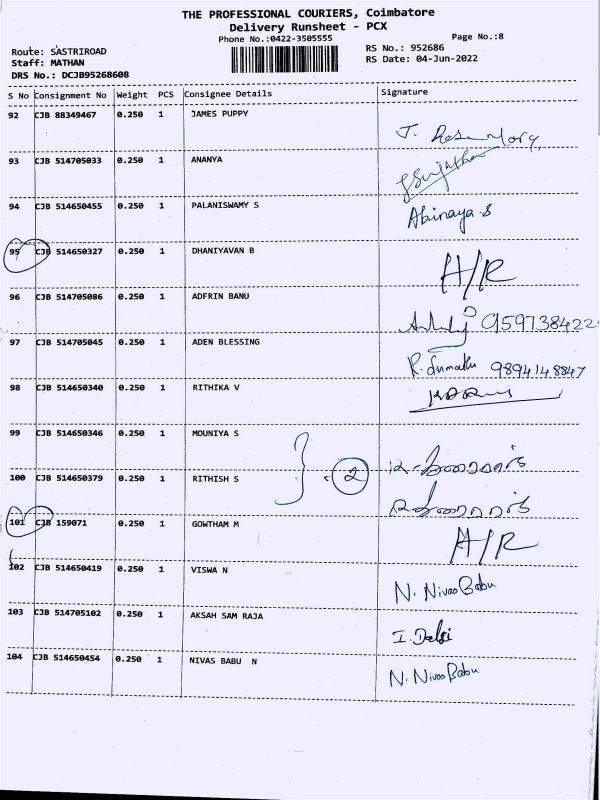 THE PROFESSIONAL COURIERS, Coimbatore
Delivery Runsheet - PCX
Phone No.:0422-3505555
Page No.:8
Route: SASTRIROAD
RS No.: 952686
Staff: MATHAN
RS Date: 04-Jun-2022
DRS No.: DCJB95268608
S No Consignment No Weight PCS Consignee Details Signature
92 CJB 88349467 0.250 1 JAMES PUPPY
J.
93 CJB 514705033 0.250 1 ANANYA
94 CJB 514650455 0.250 1 PALANISWAMY S
Abinaya.S
95 CJB 514650327 0.250 1 DHANIYAVAN B
A/R
96 CJB 514705086 0.250 1 ADFRIN BANU
959738422
97 CJB 514705045 0.250 1 ADEN BLESSING
R. Sumathi 9894148847
98 CJB 514650340 0.250 1 RITHIKA V
99 CJB 514650346 0.250 1 MOUNIYA S
2
100 CJB 514650379 0.250 1 RITHISH S
101 CJB 159071 0.250 1 GOWTHAM M
A/R
102 CJB 514650419 0.250 1 VISWA N
N. Nivas Babu
103 CJB 514705102 0.250 1 AKSAH SAM RAJA
I. Delsi
104 CJB 514650454 0.250 1 NIVAS BABU N
N. Nivas Babu